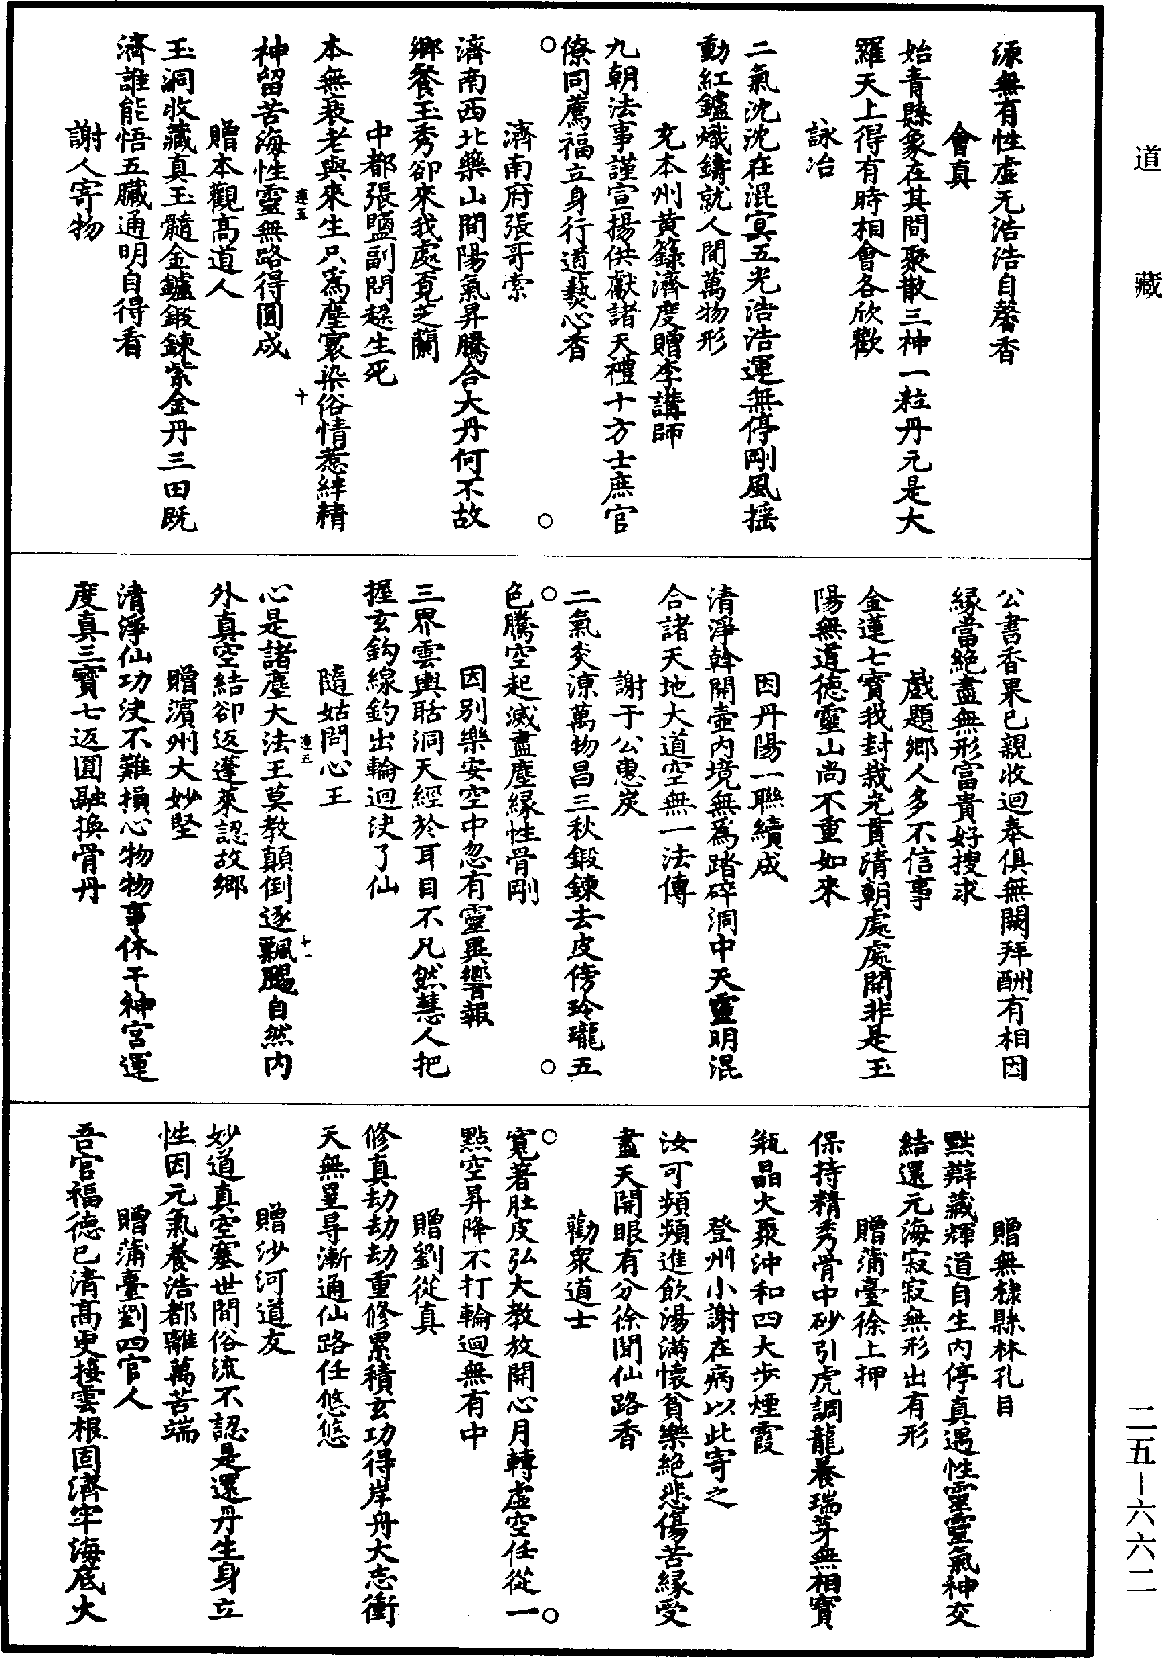 道藏
源無有性虛元浩浩自馨香
會真
始青懸象在其間聚散三神一粒丹元是大
羅天上得有時相會各欣歡
詠冶
二氣沈沈在混冥五光浩浩運無停剛風搖
動紅鑪熾鑄就人間萬物形
充本州黃籙濟度贈李講師
九朝法事謹宣揚供獻諸天禮十方士庶官
僚同薦福立身行道爇心香
濟南府張哥索
濟南西北藥山間陽氣昇騰合大丹何不故
鄉餐玉秀卻來我處覓芝蘭
中都張鹽副問超生死
本無衰老與來生只為塵寰染俗情惹絆精
神留苦海性靈無路得圓成
蓮五 十
贈本觀高道人
玉洞收藏真玉髓金鑪鍛鍊紫金丹三田既
濟誰能悟五臟通明自得看
謝人寄物
公書香果已親收迴奉俱無闕拜酬有相因
緣當絕盡無形富貴好搜求
戲題鄉人多不信事
金蓮七寶我封栽光貫清朝處處開非是玉
陽無道德靈山尚不重如來
因丹陽一聯續成
清淨斡開壺內境無為踏碎洞中天靈明混
合諸天地大道空無一法傳
謝于公惠炭
二氣炎涼萬物昌三秋鍛鍊去皮傍玲瓏五
色騰空起滅盡塵緣性骨剛
因別樂安空中忽有靈異響報
三界雲輿聒洞天經於耳目不凡然慧人把
握玄鈎線釣出輪迴決了仙
隨姑問心王
心是諸塵大法王莫教顛倒逐飄颺自然內
外真空結卻返蓬萊認故鄉
蓮五 十一
贈濱州大妙堅
清淨仙功決不難損心物物事休干神宮運
度真三寶七返圓融換骨丹
贈無棣縣林孔目
默辯藏輝道自生內停真遇性靈靈氣神交
結還元海寂寂無形出有形
贈蒲臺徐上押
保持精秀骨中砂引虎調龍養瑞芽無相寶
瓶晶火聚沖和四大步煙霞
登州小謝在病以此寄之
汝可頻頻進飲湯滿懷貧樂絕悲傷苦緣受
盡天開眼有分徐聞仙路香
勸眾道士
寬著肚皮弘大教放開心月轉虛空任從一
點空昇降不打輪迴無有中
贈劉從真
修真劫劫劫重修累積玄功得岸舟大志衝
天無罣㝵漸通仙路任悠悠
贈沙河道友
妙道真空塞世間俗流不認是還丹生身立
性因元氣養浩都離萬苦端
贈蒲臺劉四官人
吾官福德已清高更接雲根固濟牢海底大
二五—六六二